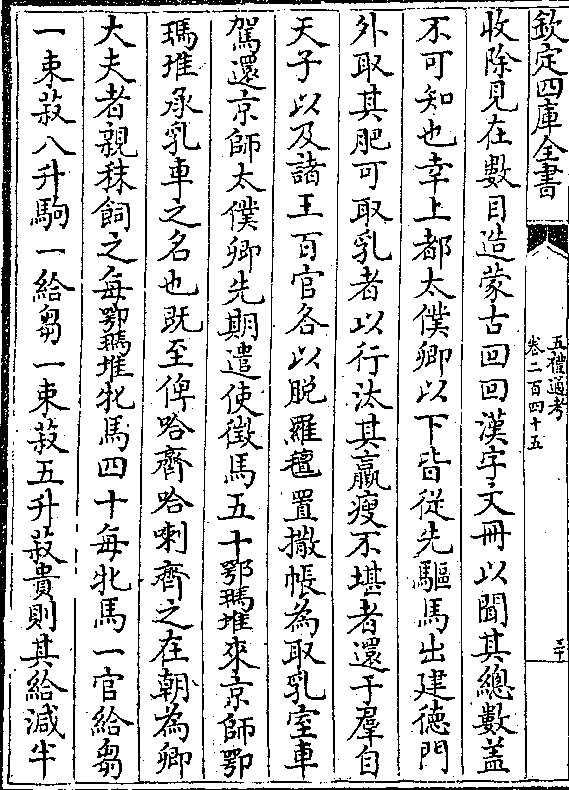 欽定四庫全書
五禮通考
卷二百四十五
三十
收除見在數目造蒙古回回漢字文冊以聞其總數蓋
不可知也幸上都太僕卿以下皆從先驅馬出建德門
外取其肥可取乳者以行汰其羸瘦不堪者還于羣自
天子以及諸王百官各以脱羅氊置撒帳為取乳室車
駕還京師太僕卿先期遣使徵馬五十鄂瑪堆來京師鄂
瑪堆承乳車之名也既至俾哈齊哈喇齊之在朝為卿
大夫者親秣飼之每鄂瑪堆牝馬四十每牝馬一官給芻
一束菽八升駒一給芻一束菽五升菽貴則其給減半